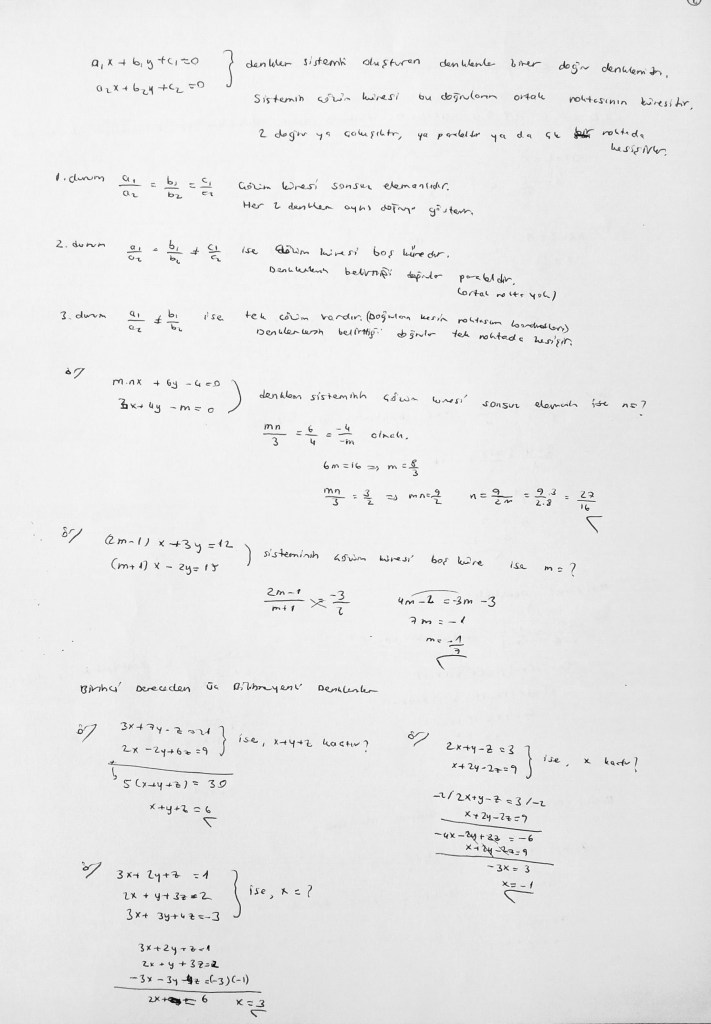 a₁x + b₁y + c₁ = 0
a₂x + b₂y + c₂ = 0
} denklem sistemini oluşturan denklemler birer doğru denklemidir.
Sistemin çözüm kümesi bu doğruların ortak noktasının kümesidir.
2 doğru ya çakışıktır, ya paraleldir ya da noktada kesişirler.
1. durum a₁/a₂ = b₁/b₂ = c₁/c₂ çözüm kümesi sonsuz elemanlıdır.
Her 2 denklem aynı doğruyu gösterir.
2. durum a₁/a₂ = b₁/b₂ ≠ c₁/c₂ ise çözüm kümesi boş kümedir.
Denklemlerin belirttiği doğrular paraleldir.
(ortak nokta yok)
3. durum a₁/a₂ ≠ b₁/b₂ ise tek çözüm vardır. (Doğruların kesim noktasının koordinatları)
Denklemlerin belirttiği doğrular tek noktada kesişir.
ör/ m.nx + 6y - 4 = 0
3x + 4y - m = 0
} denklem sisteminin çözüm kümesi sonsuz elemanlı ise n = ?
mn/3 = 6/4 = -4/-m olmalı.
6m = 16 ⇒ m = 8/3
mn/3 = 3/2 ⇒ mn = 9/2 n = 9/2m = 9.3/2.8 = 27/16
ör/ (2m-1) x + 3y = 12
(m+1) x - 2y = 15
) sisteminin çözüm kümesi boş küme ise m = ?
2m-1/m+1 = -3/2 4m - 2 = -3m - 3
7m = -1
m = -1/7
Birinci Dereceden Üç Bilinmeyenli Denklemler
ör/ 3x + 7y - z = 21
2x - 2y + 6z = 9
} ise, x+y+z kaçtır?
5(x+y+z) = 30
x+y+z = 6
ör/ 2x + y - z = 3
x + 2y - 2z = 9
} ise, x kaçtır?
-2/ 2x+y-z = 3 /-2
x + 2y - 2z = 9
-4x - 2y + 2z = -6
x + 2y - 2z = 9
-3x = 3
x = -1
ör/ 3x + 2y + z = 1
2x + y + 3z = 2
3x + 3y + 4z = -3
} ise, x = ?
3x + 2y + z = 1
2x + y + 3z = 2
-3x - 3y - 4z = (-3)(-1)
2x = 6 x = 3